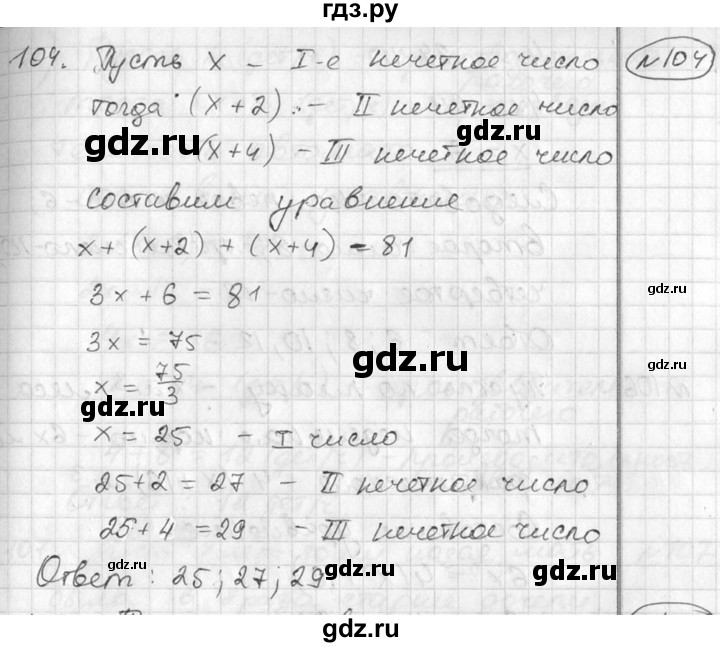 гдз.ру
104. Пусть x – I-е нечетное число
№104
тогда (x+2) – II нечетное число
gdz.ru
gdz.ru
(x+4) – III нечетное число
составим уравнение
x + (x+2) + (x+4) = 81
3x + 6 = 81
gdz.ru
3x = 75
gdz.ru
gdz.ru
x = 75/3
gdz.ru
x = 25 – I число
25+2 = 27 – II нечетное число
gdz.ru
25+4 = 29 – III нечетное число
gdz.ru
gdz.ru
Ответ: 25; 27; 29
gdz.ru
gdz.ru
gdz.ru